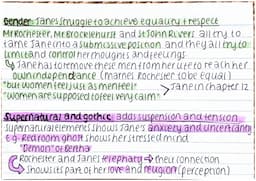 Gender: Janes struggle to achieve equality + respect
Mr Rochester, Mr Brocklehurst and St John Rivers all try to
tame Jane into a submissive position and they all try to
limit and control her thoughts and feelings
↳ Jane has to remove these men from her life to reach her
own independance (marries Rochester to be equal)
"but women feel just as men feel"
"women are supposed to feel very calm" > Jane in chapter 12
Supernatural and gothic adds suspension and tension
Supernatural elements shows Jane's anxiety and uncertainty
e.g. Red room ghost shows her stressed mind
"Demon" of Bertha
Rochester and Janes telepathy → their connection
↳ Shows its part of her love and religion (perception)